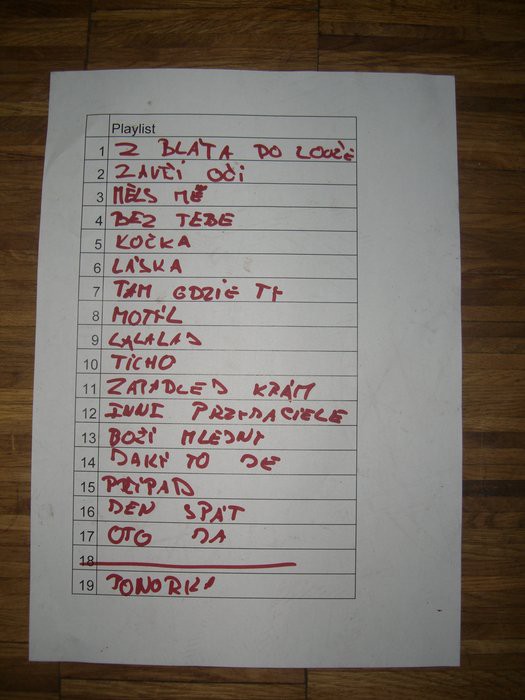 Playlist
1 Z BLÁTA DO LOUŽE
2 ZAVČÍ OČI
3 MĚLS MĚ
4 BEZ TEBE
5 KOČKA
6 LÁSKA
7 TAM GDZIE TY
8 MOTÝL
9 LALALAJ
10 TICHO
11 ZAPADLEJ KRÁM
12 INNI PRZYJACIELE
13 BOŽÍ MLEJNY
14 JAKÝ TO JE
15 PŘÍPAD
16 DEN SPÁT
17 OTO JA
18
19 PONORKA